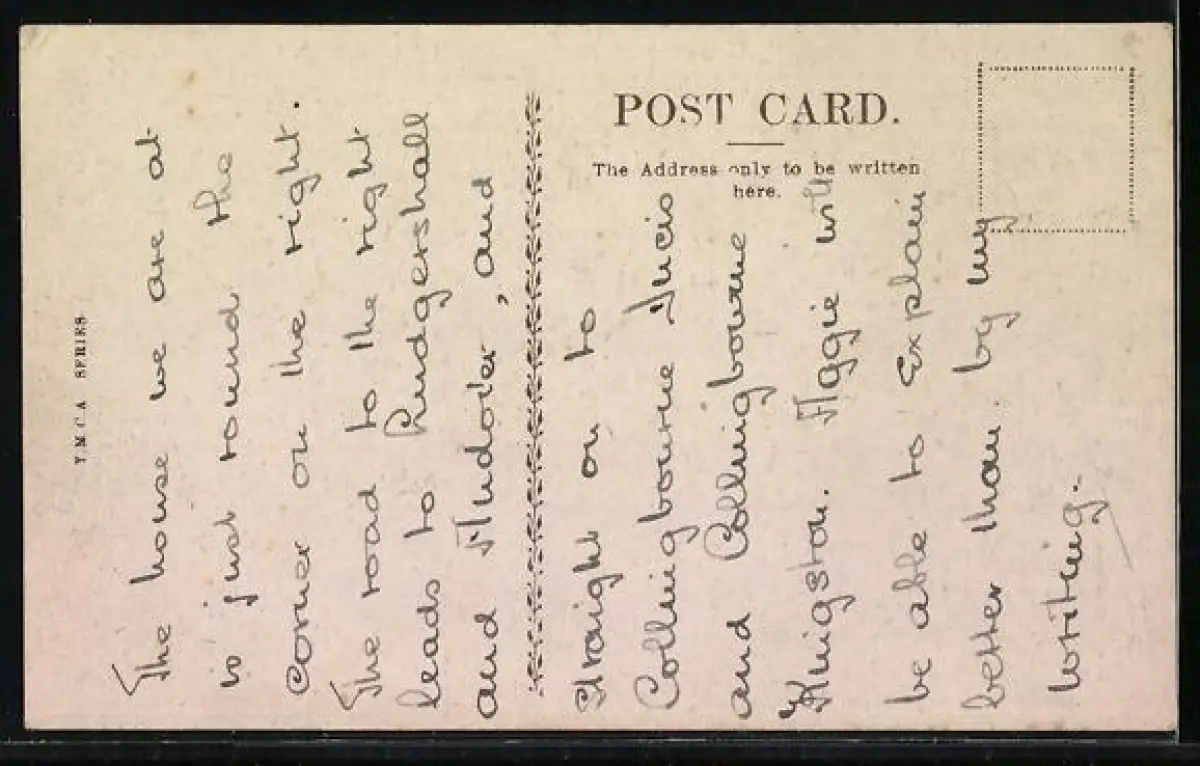 Y.M.C.A SERIES
POST CARD.
The Address only to be written
here.
The house we are at
is just round the
Corner on the right.
The road to the right
leads to Ludgershall
and Andover, and
Straight on to
Collingbourne Ducis
and Collingbourne
Kingston. Aggie will
be able to Explain
better than by my
writing.